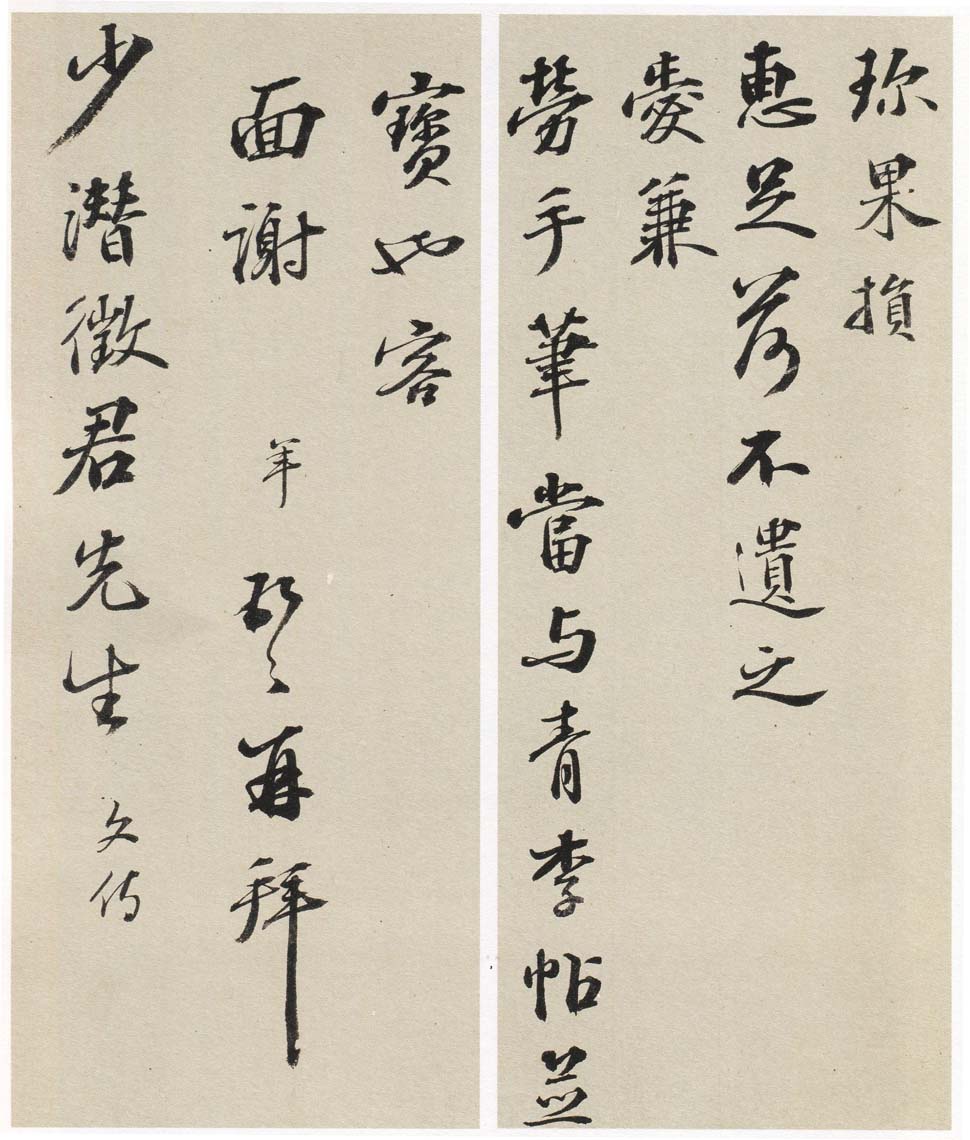 珎果損
惠足荷不遺之
愛兼
勞手筆當与青李帖並
寶也容
面謝 再拜
少潛徵君先生 文侍